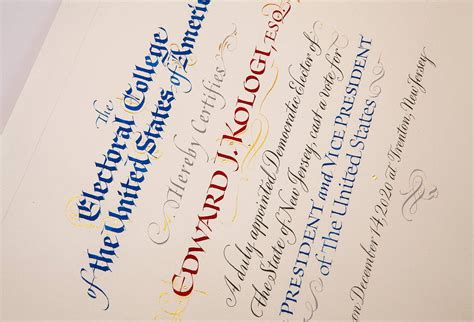 The
Electoral College
of the United States of America
Hereby Certifies
EDWARD J. KOLOGI, ESQ.
A duly appointed Democratic Elector of
The State of New Jersey, cast a vote for
PRESIDENT and VICE PRESIDENT
of The United States
on December 14, 2020 at Trenton, New Jersey